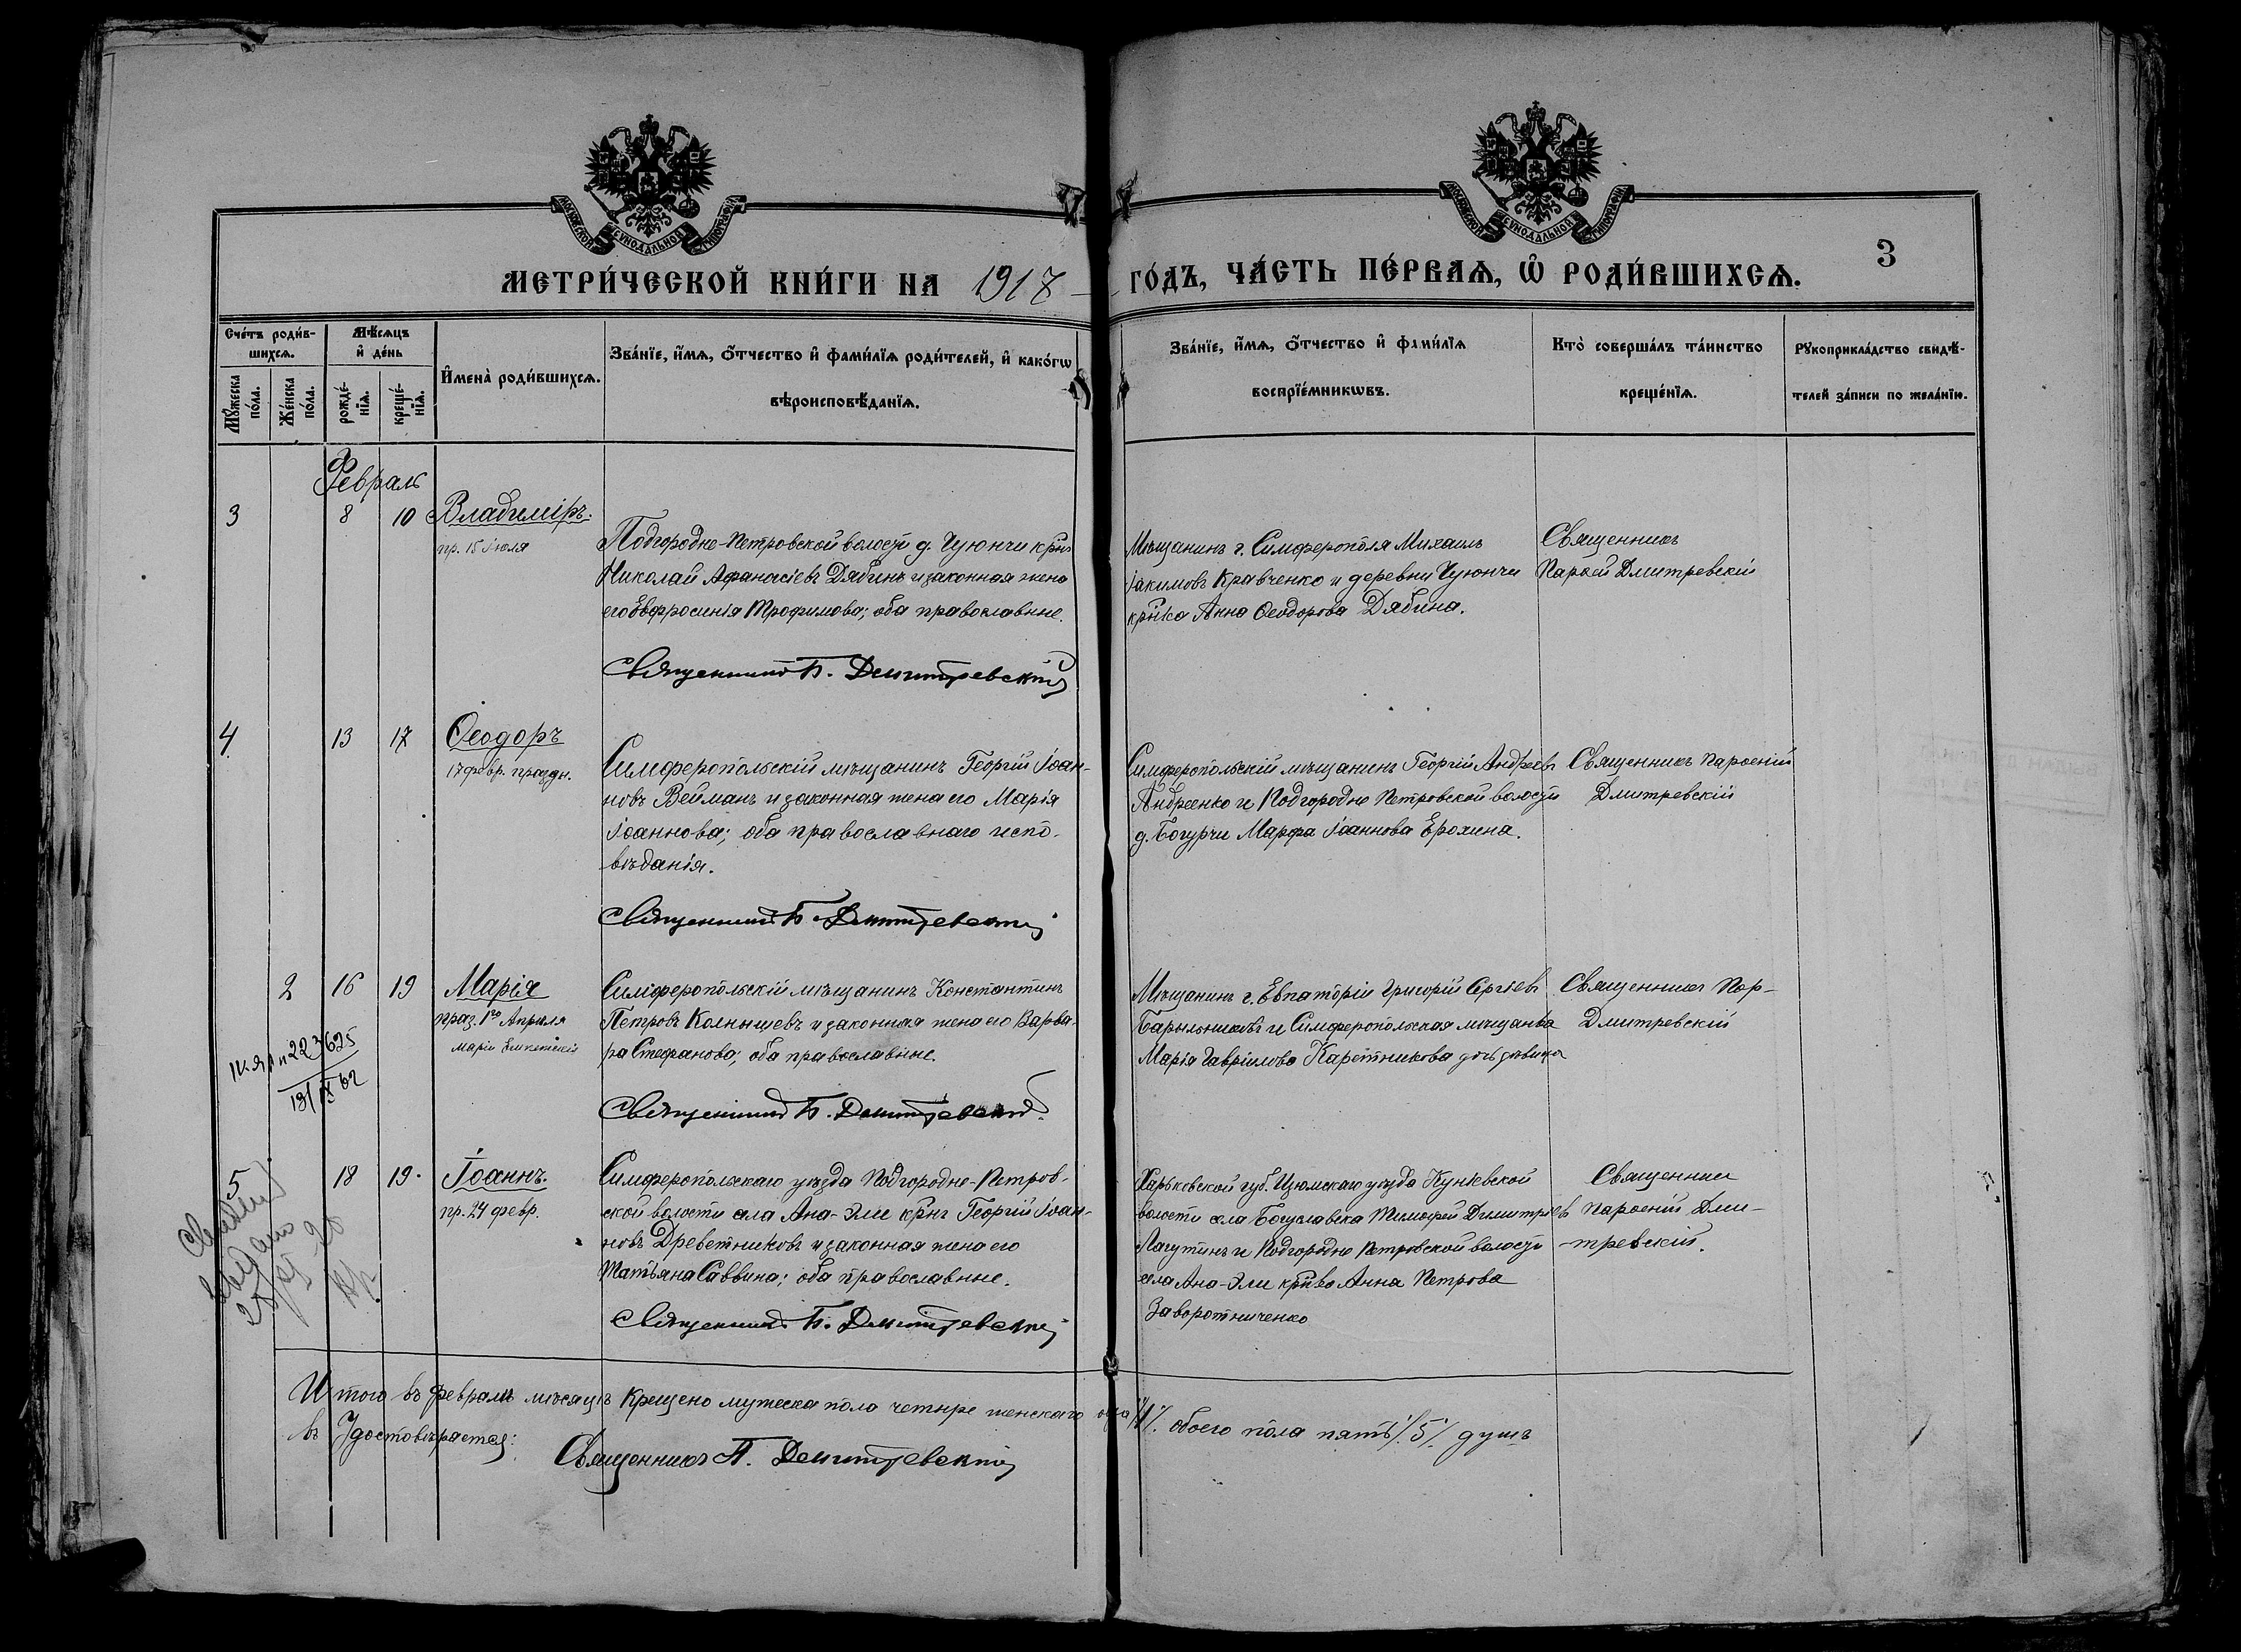 МОСКОВСКОЙ СѴНОДАЛЬНОЙ ТИПОГРАФІИ
МОСКОВСКОЙ СѴНОДАЛЬНОЙ ТИПОГРАФІИ
3
МЕТРИ́ЧЕСКОЙ КНИ́ГИ НА 1917 ГО́ДЪ, ЧА́СТЬ ПЕ́РВАѦ, Ѽ РОДИ́ВШИХСѦ.
Сче́тъ роди́в-
шихсѧ.
Мꙋ́жеска по́ла.
Же́нска по́ла.
Мѣ́сѧцъ
и҆ де́нь
рожде́-
нїѧ.
креще́-
нїѧ.
И҆мена̀ роди́вшихсѧ.
Зва́нїе, и҆́мѧ, ѻ҆́тчество и҆ фами́лїѧ роди́телей, и҆ како́гѡ
вѣроисповѣ́данїѧ.
Зва́нїе, и҆́мѧ, ѻ҆́тчество и҆ фами́лїѧ
воспрїе́мникѡвъ.
Кто̀ соверша́лъ та́инство
креще́нїѧ.
Рꙋкоприкла́дство свидѣ́-
телей за́писи по жела́нїю.
Февраль
3 8 10 Владиміръ.
пр. 15 Іюля
Подгородне-Петровской волости д. Чуюнчи кр-нъ
Николай Афанасіевъ Дябинъ и законная жена
его Евфросинія Трофимова; оба православные.
Священникъ П. Димитревскій
Мѣщанинъ г. Симферополя Михаилъ
Іакимовъ Кравченко и деревни Чуюнчи
кр-нка Анна Ѳеодорова Дябина.
Священникъ
Дмитревскій
4 13 17 Ѳеодоръ
17 февр. праздн.
Симферопольскій мѣщанинъ Георгій Іоан-
новъ Вейманъ и законная жена его Марія
Іоаннова; оба православнаго испо-
вѣданія.
Священникъ П. Димитревскій
Симферопольскій мѣщанинъ Георгій Андреевъ
Андреенко и Подгородне Петровской волости
д. Богурчи Марфа Іоаннова Ерохина.
Священникъ Парѳеній
Дмитревскій
2 16 19 Марія
праз. 1го Апреля
Маріи Египетскія
223625
Симферопольскій мѣщанинъ Константинъ
Петровъ Колнышевъ и законная жена его Варва-
ра Стефанова; оба православные.
Священникъ П. Димитревскій
Мѣщанинъ г. Евпаторіи Григорій Сергіевъ
Барыльниковъ и Симферопольская мѣщанка
Марія Гавріилова Каретникова дочь дѣвица
Священникъ Пар-
Дмитревскій
5 18 19. Іоаннъ.
пр. 24 февр.
Симферопольскаго уѣзда Подгородне-Петров-
ской волости села Ана-Эли кр-нъ Георгій Іоан-
новъ Древетниковъ и законная жена его
Татьяна Саввина; оба православные.
Священникъ П. Димитревскій
Харьковской губ. Изюмскаго уѣзда Куньевской
волости села Богуславска Тимофей Димитріевъ
Лагутинъ и Подгородне Петровской волости
села Ана-Эли кр-нка Анна Петрова
Заворотниченко
Священникъ
Парѳеній Дми-
-тревскій.
Итого въ февралѣ мѣсяцѣ крещено мужеска пола четыре женскаго одна /1/. обоего пола пять /5/. душъ
въ Удостовѣряется:
Священникъ П. Димитревскій